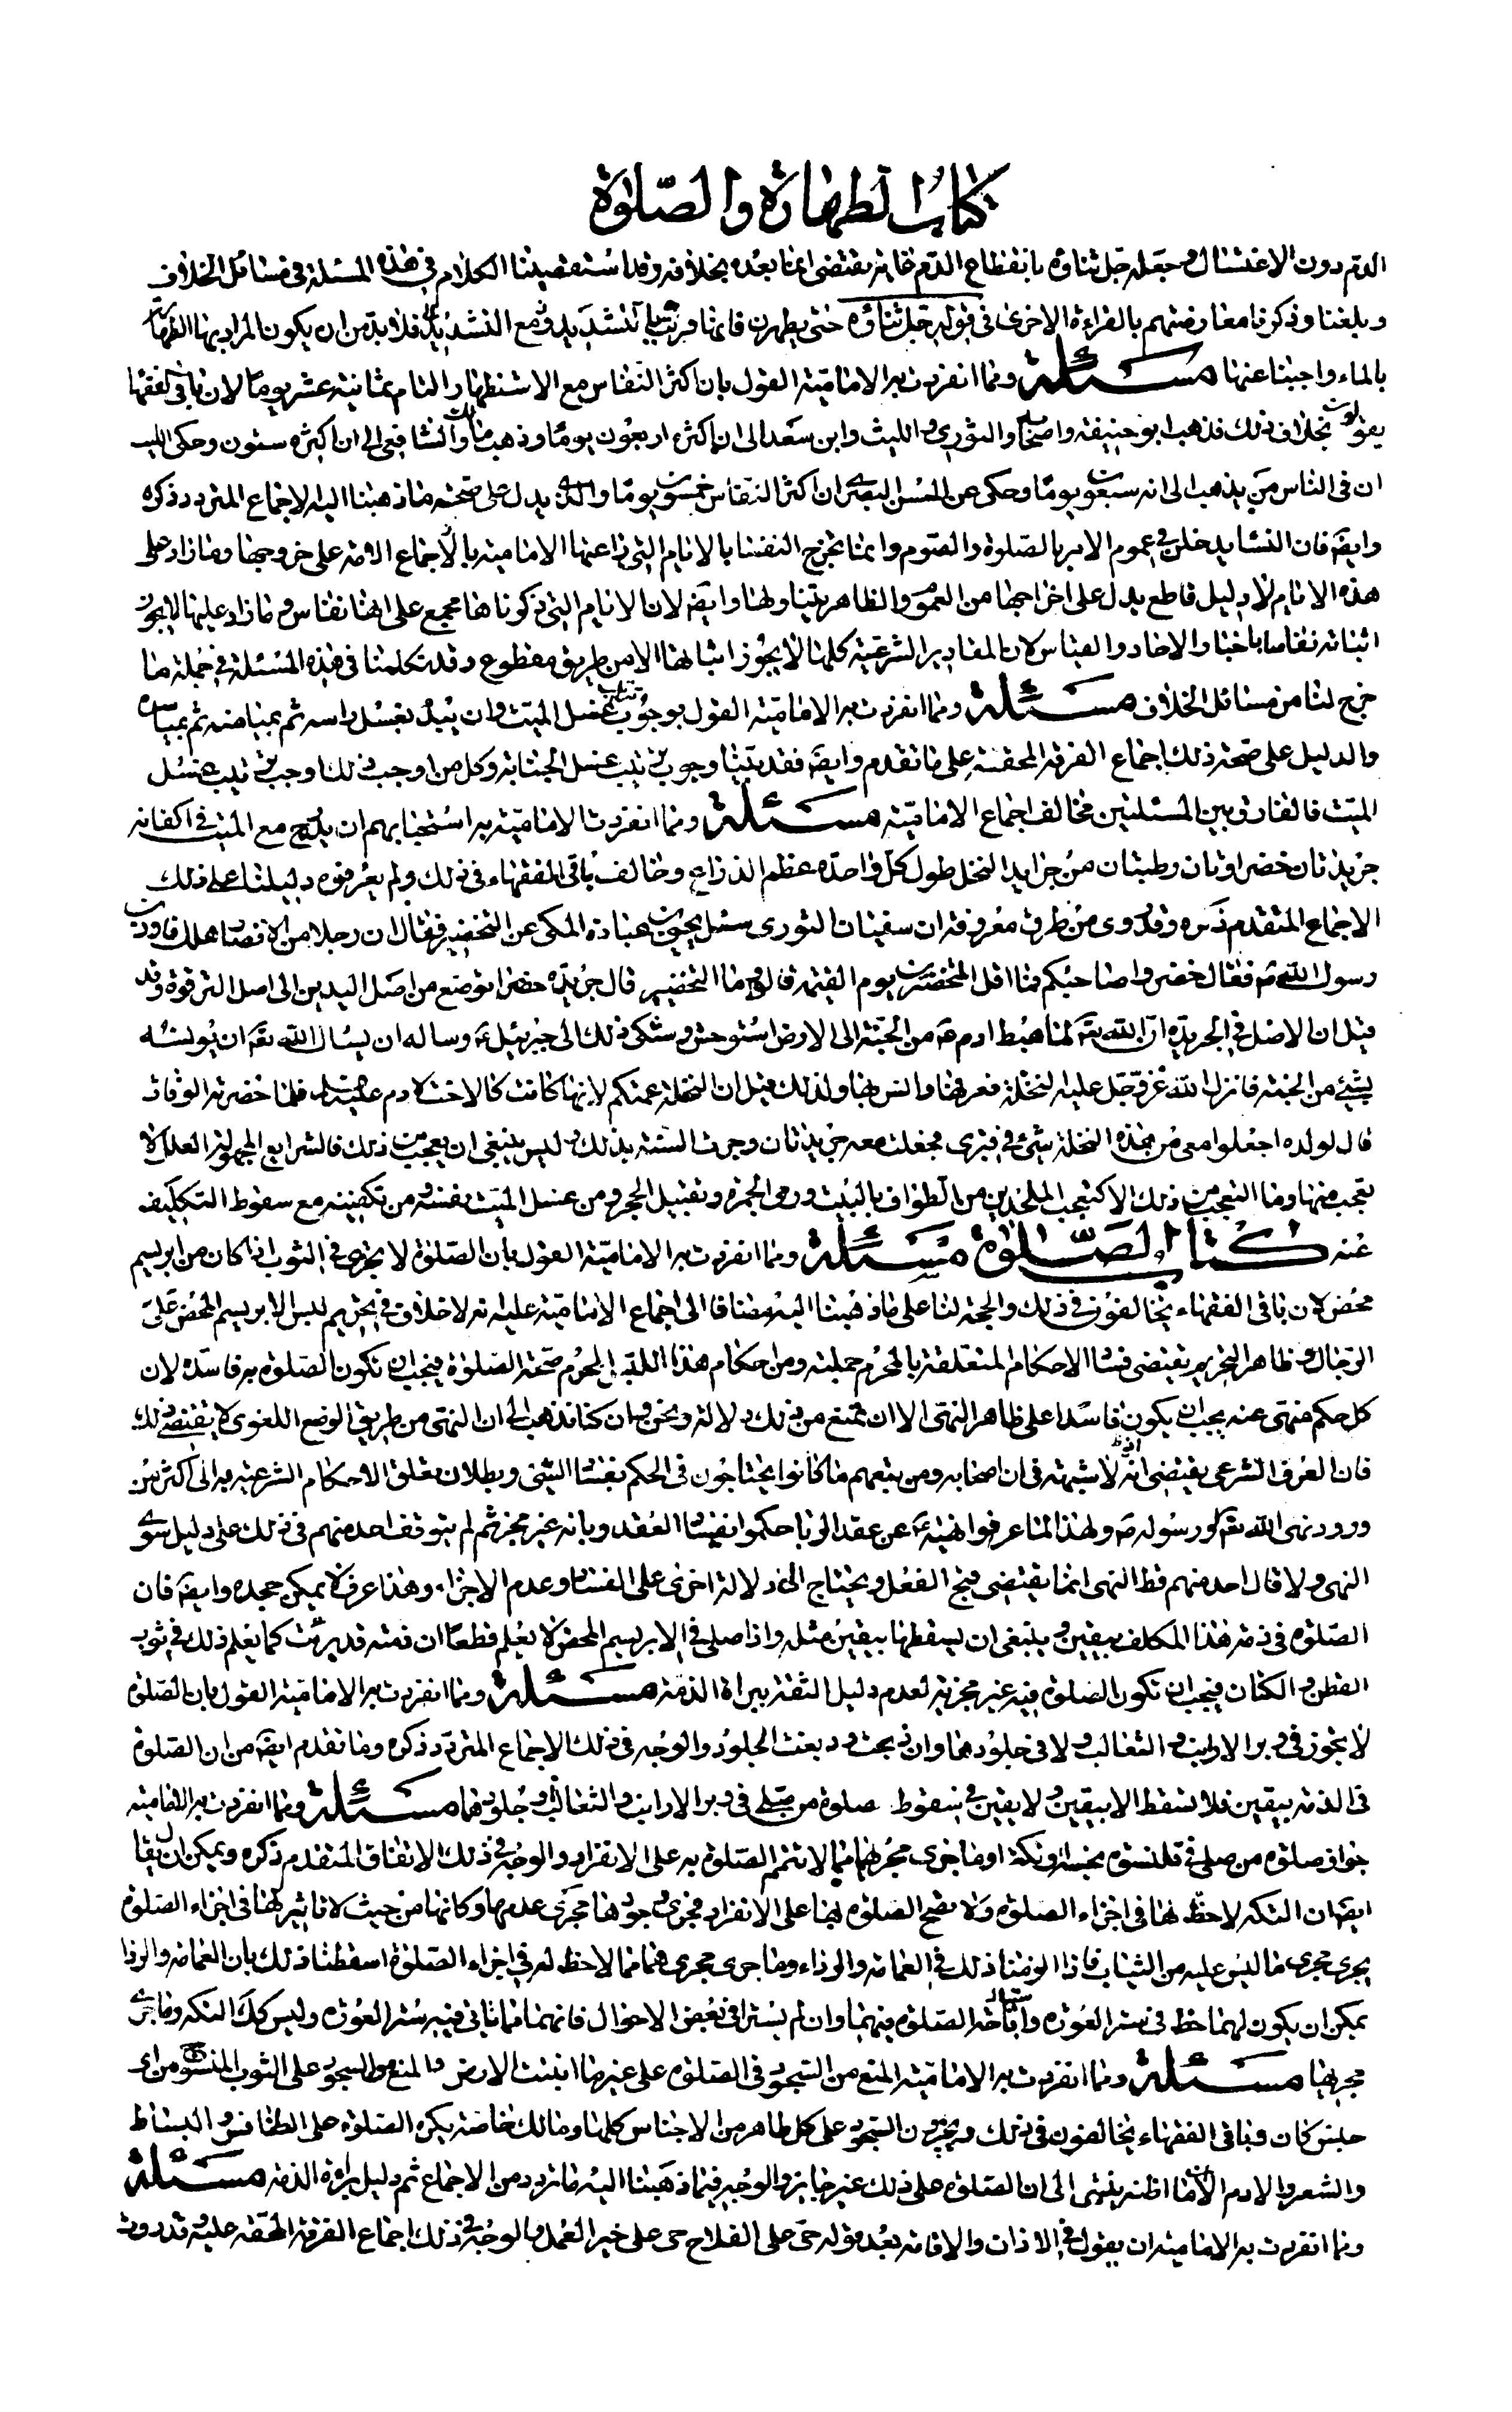 كتاب الطهارة والصلوة
الدم دون الاغتسال وجعله جل ثناؤه بانقطاع الدم غاية يقتضى ان ما بعده بخلافه وقد استقصينا الكلام فى هذه المسئلة فى مسائل الخلاف
وبلغنا وذكرنا معارضتهم بالقراءة الاخرى فى قوله جل ثناؤه حتى يطهرن فانها قرئت بالتشديد ومع التشديد فلا بد من ان يكون المراد بها الطهارة
بالماء واجبنا عنها مسئلة ومما انفردت به الامامية القول بان اكثر النفاس مع الاستظهار التام ثمانية عشر يوما لان باقى الفقها
يقولون بخلاف ذلك فذهب ابو حنيفة واصحابه والثورى والليث وابن سعد الى ان اكثره اربعون يوما وذهب مالك والشافعى الى ان اكثره ستون وحكى الليث
ان فى الناس من يذهب الى انه سبعون يوما وحكى عن الحسن البصرى ان اكثر النفاس خمسون يوما والذى يدل على صحة ما ذهبنا اليه الاجماع المتردد ذكره
وايضا فان النسا يدخلن فى عموم الامر بالصلوة والصوم وانما يخرج النفسا بالايام التى راعيناها الامامية بالاجماع الامة على خروجها وما زاد على
هذه الايام لا دليل قاطع يدل على اخراجها من العموم والظاهر يتناولها وايضا لان الايام التى ذكرناها مجمع على انها نفاس وما زاد عليها لا يجوز
اثباته نفاسا باخبار الاحاد والقياس لان المقادير الشرعية كلها لا يجوز اثباتها الا من طريق مقطوع وقد تكلمنا فى هذه المسئلة فى جملة ما
خرج لنا من مسائل الخلاف مسئلة ومما انفردت به الامامية القول بوجوب ترتيب غسل الميت وان يبدء بغسل راسه ثم بميامنه ثم بمياسره
والدليل على صحة ذلك اجماع الفرقة المحقة على ما تقدم وايضا فقد بينا وجوب ترتيب غسل الجنابة وكل من اوجب ذلك اوجب ترتيب غسل
الميت فالفارق بين المسئلتين مخالف اجماع الامامية مسئلة ومما انفردت الامامية به استحبابهم ان يدرج مع الميت فى اكفانه
جريدتان خضراوتان رطبتان من جرايد النخل طول كل واحدة عظم الذراع وخالف باقى الفقهاء فى ذلك ولم يعرفوه دليلنا على ذلك
الاجماع المتقدم ذكره وقد روى من طرق معروفة ان سفيان الثورى سئل يحيى بن عبادة المكى عن التخضير فقال ان رجلا من الانصار هلك فاوذن
رسول الله ص فقال خضروا صاحبكم فما اقل المخضرين يوم القيمة قالوا وما التخضير قال جريدة خضرا توضع من اصل اليدين الى اصل الترقوة وقد
قيل ان الاصل فى الجريدة ان الله تعالى لما هبط ادم ع من الجنة الى الارض استوحش وشكى ذلك الى جبرئيل ع وساله ان يسال الله تعالى ان يونسه
بشئ من الجنة فانزل الله عز وجل عليه النخلة فعرفها وانس بها ولذلك قيل ان النخلة عمتكم لانها كانت كالاخت لادم عليه السلام فلما حضرته الوفاة
قال لولده اجعلوا معى من هذه النخلة شئ فى قبرى فجعلت معه جريدتان وجرت السنة بذلك وليس ينبغى ان يعجب من ذلك فالشرايع المجهولة العلل لا
يعجب منها وما التعجب من ذلك الا كتعجب الملحدين من الطواف بالبيت ورمى الجمرة وتقبيل الحجر ومن غسل الميت نفسه ومن تكفينه مع سقوط التكليف
عنه كتاب الصلوة مسئلة ومما انفردت به الامامية القول بان الصلوة لا يجزى فى الثوب اذا كان من ابريسم
محض لان باقى الفقهاء يخالفون فى ذلك والحجة لنا على ما ذهبنا اليه مضافا الى اجماع الامامية عليه انه لا خلاف فى تحريم لبس الابريسم المحض على
الرجال وظاهر التحريم يقتضى فساد الاحكام المتعلقة بالمحرم جملة ومن احكام هذا اللبس المحرم صحة الصلوة فيجب ان تكون الصلوة به فاسدة لان
كل حكم منهى عنه يجب ان يكون فاسدا على ظاهر النهى الا ان يمنع من ذلك دلالة ونحن وان كنا نذهب الى ان النهى من طريق الوضع اللغوى لا يقتضى ذلك
فان العرف الشرعى يقتضى انه لا شبهة فى ان اصحابه ومن يتبعهم ما كانوا يحتاجون فى الحكم بفساد الشئ وبطلان تعلق الاحكام الشرعية به الى اكثر من
ورود نهى الله تعالى او رسوله ص ولهذا لما عرفوا نهيه ع عن عقد الربا حكموا بفساد العقد وبانه غير مجز ثم لم يتوقف احد منهم فى ذلك على دليل سوى
النهى ولا قال احد منهم قط النهى انما يقتضى قبح الفعل ويحتاج الى دلالة اخرى على الفساد وعدم الاجزاء وهذا عرف لا يمكن جحده وايضا فان
الصلوة فى ذمة هذا المكلف بيقين وينبغى ان يسقطها بيقين مثله واذا صلى فى الابريسم المحض لا يعلم قطعا ان ذمته قد برئت كما يعلم ذلك فى ثوب
القطن والكتان فيجب ان تكون الصلوة فيه غير مجزية لعدم دليل الثقة ببراة الذمة مسئلة ومما انفردت به الامامية القول بان الصلوة
لا يجوز فى وبر الارانب والثعالب ولا فى جلودهما وان ذبحت ودبغت الجلود والوجه فى ذلك الاجماع المتردد ذكره وما تقدم ايضا من ان الصلوة
فى الذمة بيقين فلا تسقط الا بيقين ولا يقين فى سقوط صلوة من صلى فى وبر الارانب والثعالب وجلودهما مسئلة ومما انفردت به الامامية
جواز صلوة من صلى فى قلنسوة نجسة او تكة او ما جرى مجراهما مما لا تتم الصلوة به على الانفراد والوجه فى ذلك الاتفاق المتقدم ذكره ويمكن ان يقال
ايضا ان التكة لا حظ لها فى اجزاء الصلوة ولا تصح الصلوة لها على الانفراد فجرى وجودها مجرى عدمها وكانها من حيث لا تاثير لها فى اجزاء الصلوة
يجرى مجرى ما ليس عليه من الثياب فاذا الزمنا ذلك فى العمامة والرداء وما جرى مجرى هما مما لا حظ له فى اجزاء الصلوة اسقطنا ذلك بان العمامة والردا
يمكن ان يكون لهما حظ فى ستر العورة واستباحة الصلوة فيهما وان لم يسترا فى بعض الاحوال فانهما مما ياتى فيه ستر العورة وليس كك التكة وما جرى
مجراها مسئلة ومما انفردت به الامامية المنع من السجود فى الصلوة على غير ما انبتت الارض والمنع من السجود على الثوب المنسوج من اى
جنس كان وباقى الفقهاء يخالفون فى ذلك ويجيزون السجود على كل طاهر من الاجناس كلها ومالك خاصة يكره الصلوة على الطنافس والبساط
والشعر والادم الا انه ما اظنه ينتهى الى ان الصلوة على ذلك غير جايزة والوجه فيما ذهبنا اليه ما تردد من الاجماع ثم دليل براءة الذمة مسئلة
ومما انفردت به الامامية ان يقول فى الاذان والاقامة بعد قوله حى على الفلاح حى على خير العمل والوجه فى ذلك اجماع الفرقة المحقة عليه وقد روت